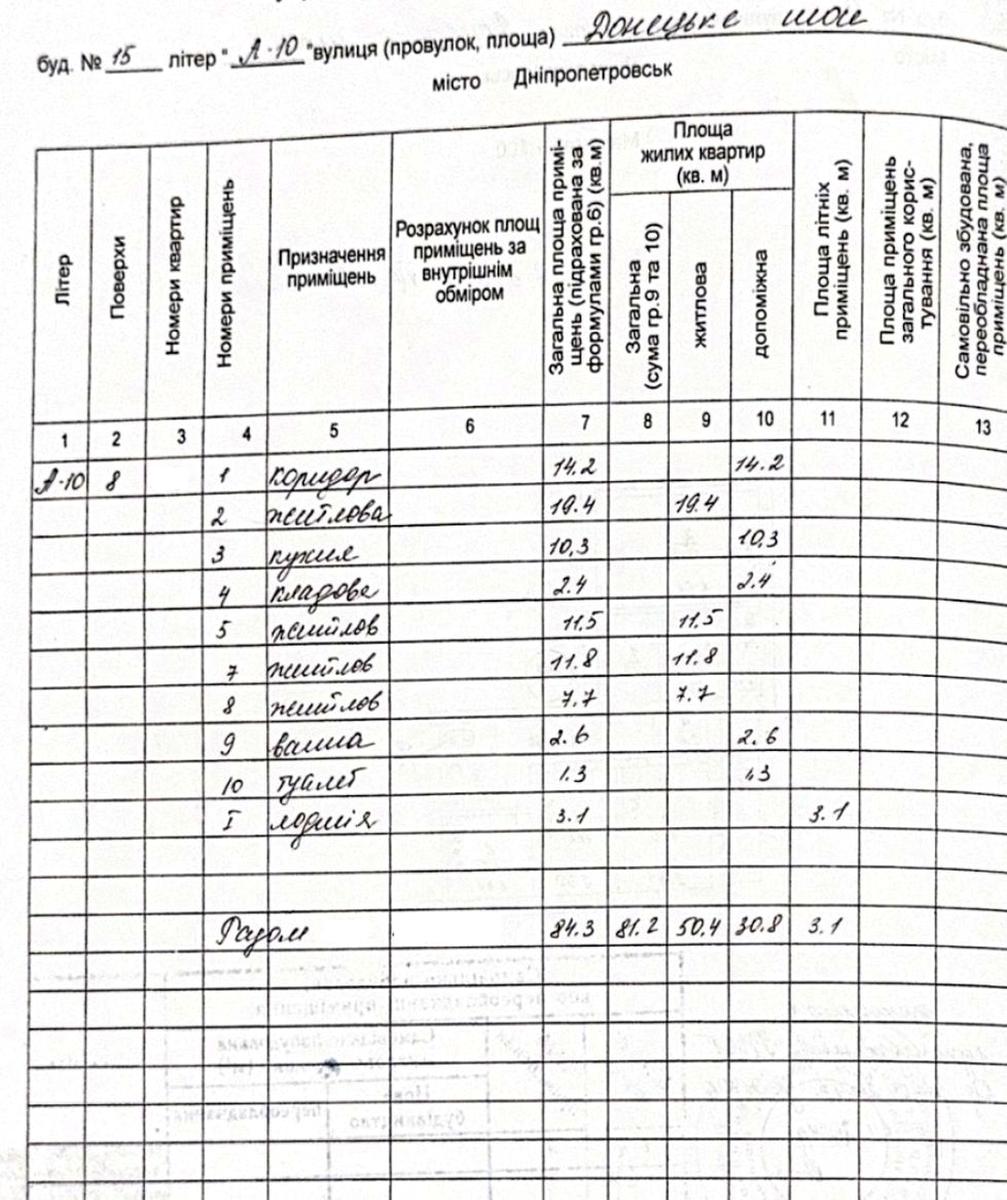 буд. № 15 літер " А-10 "вулиця (провулок, площа) Донецьке шосе
місто Дніпропетровськ
Літер Поверхи Номери квартир Номери приміщень Призначення приміщень Розрахунок площ приміщень за внутрішнім обміром Загальна площа приміщень (підрахована за формулами гр.6) (кв.м) Площа жилих квартир (кв. м) Загальна (сума гр.9 та 10) житлова допоміжна Площа літніх приміщень (кв. м) Площа приміщень загального користування (кв. м) Самовільно збудована, переобладнана площа приміщень (кв. м)
1 2 3 4 5 6 7 8 9 10 11 12 13
А-10 8 1 коридор 14.2 14.2
2 житлова 19.4 19.4
3 кухня 10,3 10,3
4 кладова 2.4 2.4
5 житлов 11.5 11.5
7 житлов 11.8 11.8
8 житлов 7.7 7.7
9 ванна 2.6 2.6
10 туалет 1.3 1.3
I лоджія 3.1 3.1
Разом 84.3 81.2 50.4 30.8 3.1